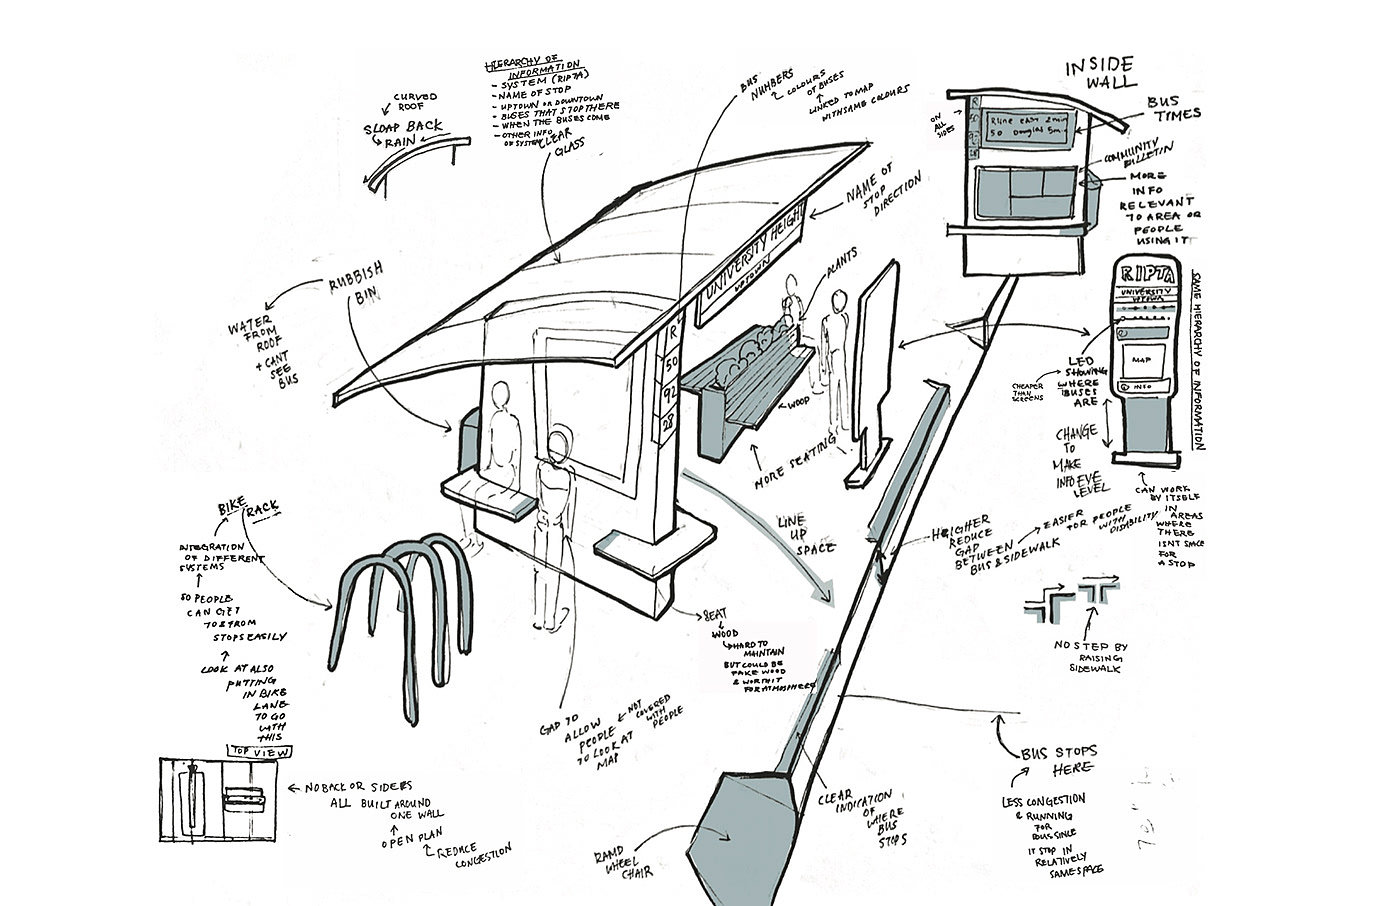 HIERARCHY OF
INFORMATION
- SYSTEM (RIPTA)
- NAME OF STOP
- UPTOWN OR DOWNTOWN
- BUSES THAT STOP THERE
- WHEN THE BUSES COME
- OTHER INFO
OF SYSTEM
CLEAR
GLASS
CURVED
ROOF
SLOAP BACK
RAIN
BUS
NUMBERS
COLOURS
OF BUSES
LINKED TO MAP
WITH SAME COLOURS
INSIDE
WALL
ON
ALL
SIDES
R
50
92
28
Rline east 2min
50 Douglas 5m
BUS
TIMES
COMMUNITY
BULLETIN
MORE
INFO
RELEVANT
TO AREA OR
PEOPLE
USING IT
NAME OF
STOP
DIRECTION
UNIVERSITY HEIGHT
UPTOWN
PLANTS
RUBBISH
BIN
WATER
FROM
ROOF
+ CANT
SEE
BUS
R
50
92
28
WOOD
MORE SEATING
RIPTA
UNIVERSITY
UPTOWN
MAP
INFO
SAME HIERARCHY OF INFORMATION
LED
SHOWING
WHERE
BUSES
ARE
CHEAPER
THAN
SCREENS
CHANGE
TO
MAKE
INFO EYE
LEVEL
CAN WORK
BY ITSELF
IN
AREAS
WHERE
THERE
ISNT SPACE
FOR
A STOP
BIKE
RACK
INTEGRATION
OF DIFFERENT
SYSTEMS
SO PEOPLE
CAN GET
TO & FROM
STOPS EASILY
LOOK AT ALSO
PUTTING
IN BIKE
LANE
TO GO
WITH
THIS
LINE
UP
SPACE
HEIGHER
REDUCE
GAP
BETWEEN
BUS & SIDEWALK
EASIER
FOR PEOPLE
WITH
DISABILITY
NO STEP BY
RAISING
SIDEWALK
SEAT
WOOD
HARD TO
MAINTAIN
BUT COULD BE
FAKE WOOD
& WORTH IT
FOR ATMOSPHERE
GAP TO
ALLOW
PEOPLE
TO LOOK AT
MAP
NOT
COVERED
WITH
PEOPLE
TOP VIEW
NO BACK OR SIDERS
ALL BUILT AROUND
ONE WALL
OPEN PLAN
REDUCE
CONGESTION
RAMP
WHEEL
CHAIR
CLEAR
INDICATION
OF
WHERE
BUS
STOPS
BUS STOPS
HERE
LESS CONGESTION
& RUNNING
FOR
BUS SINCE
IT STOP IN
RELATIVELY
SAME SPACE